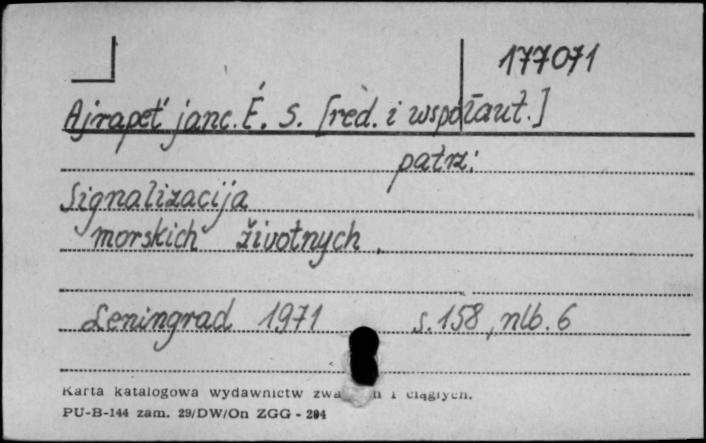 177071
Ajrapet'janc. É. S. [red. i współaut.]
patrz:
Signalizacija
morskich životnych.
Leningrad 1971 s. 158, nlb. 6
Karta katalogowa wydawnictw i ciągłych.
PU-B-144 zam. 29/DW/On ZGG - 204